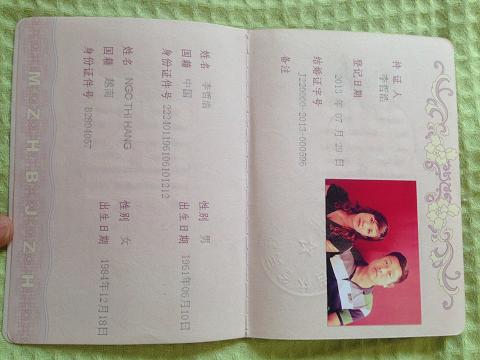 持证人 李哲浩
登记日期 2013年07月29日
结婚证字号 J220000-2013-000596
备注
姓名 李哲浩 性别 男
国籍 中国 出生日期 1961年06月10日
身份证件号 222401196106101212
姓名 NGO THI HANG 性别 女
国籍 越南 出生日期 1984年12月18日
身份证件号 B2894057
MZHBJZH